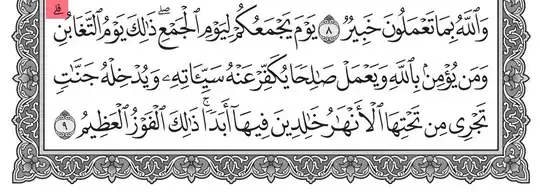 وَٱللَّهُ بِمَا تَعۡمَلُونَ خَبِيرٞ ٨ يَوۡمَ يَجۡمَعُكُمۡ لِيَوۡمِ ٱلۡجَمۡعِۖ ذَٰلِكَ يَوۡمُ ٱلتَّغَابُنِۗ
وَمَن يُؤۡمِنۢ بِٱللَّهِ وَيَعۡمَلۡ صَٰلِحٗا يُكَفِّرۡ عَنۡهُ سَيِّـَٔاتِهِۦ وَيُدۡخِلۡهُ جَنَّٰتٖ
تَجۡرِي مِن تَحۡتِهَا ٱلۡأَنۡهَٰرُ خَٰلِدِينَ فِيهَآ أَبَدٗاۚ ذَٰلِكَ ٱلۡفَوۡزُ ٱلۡعَظِيمُ ٩